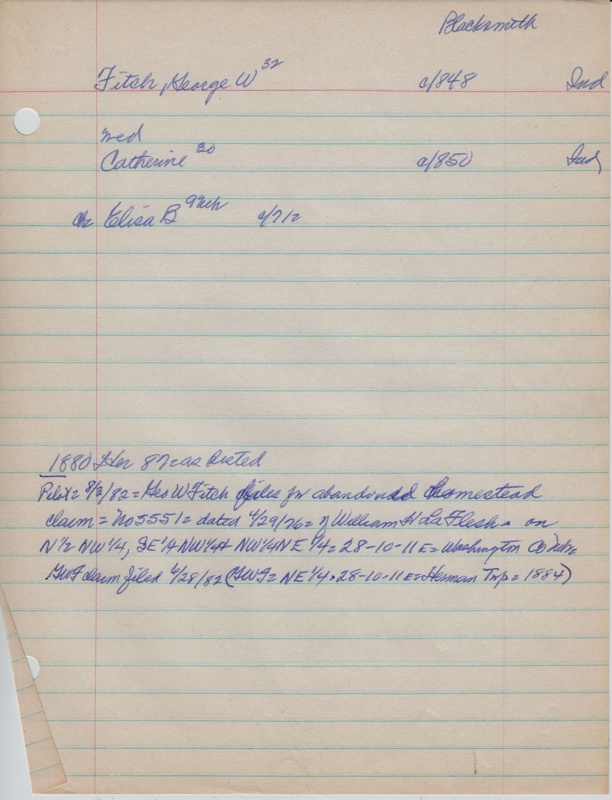 Blacksmith
Fitch, George W 32 c/848 Ind
med
Catherine 30 c/850 Ind
ch Elisa B c/71/2
1880 Her 8 as listed
Pilot = 8/3/82 = Geo W Fitch files for abandoned homestead
claim = No 5551 = dated 4/29/76 = of William H LaFlesh = on
N 1/2 NW 1/4, SE 1/4 NW 1/4 NW 1/4 NE 1/4 = 28-10-11 E = Washington Co Nebr
GWF claim filed 6/28/82 (GWF = NE 1/4 = 28-10-11 E = Herman Twp = 1884)